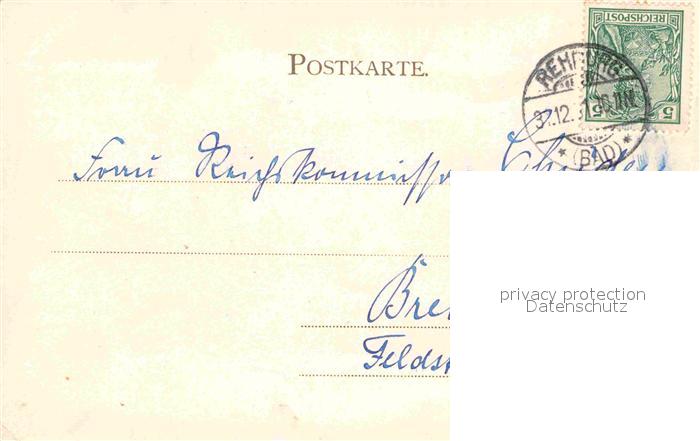 POSTKARTE.
REICHSPOST
5 5
REHBURG
12.
* (BAD) *
Frau Reichskommissar
Bre
Feldst
privacy protection
Datenschutz